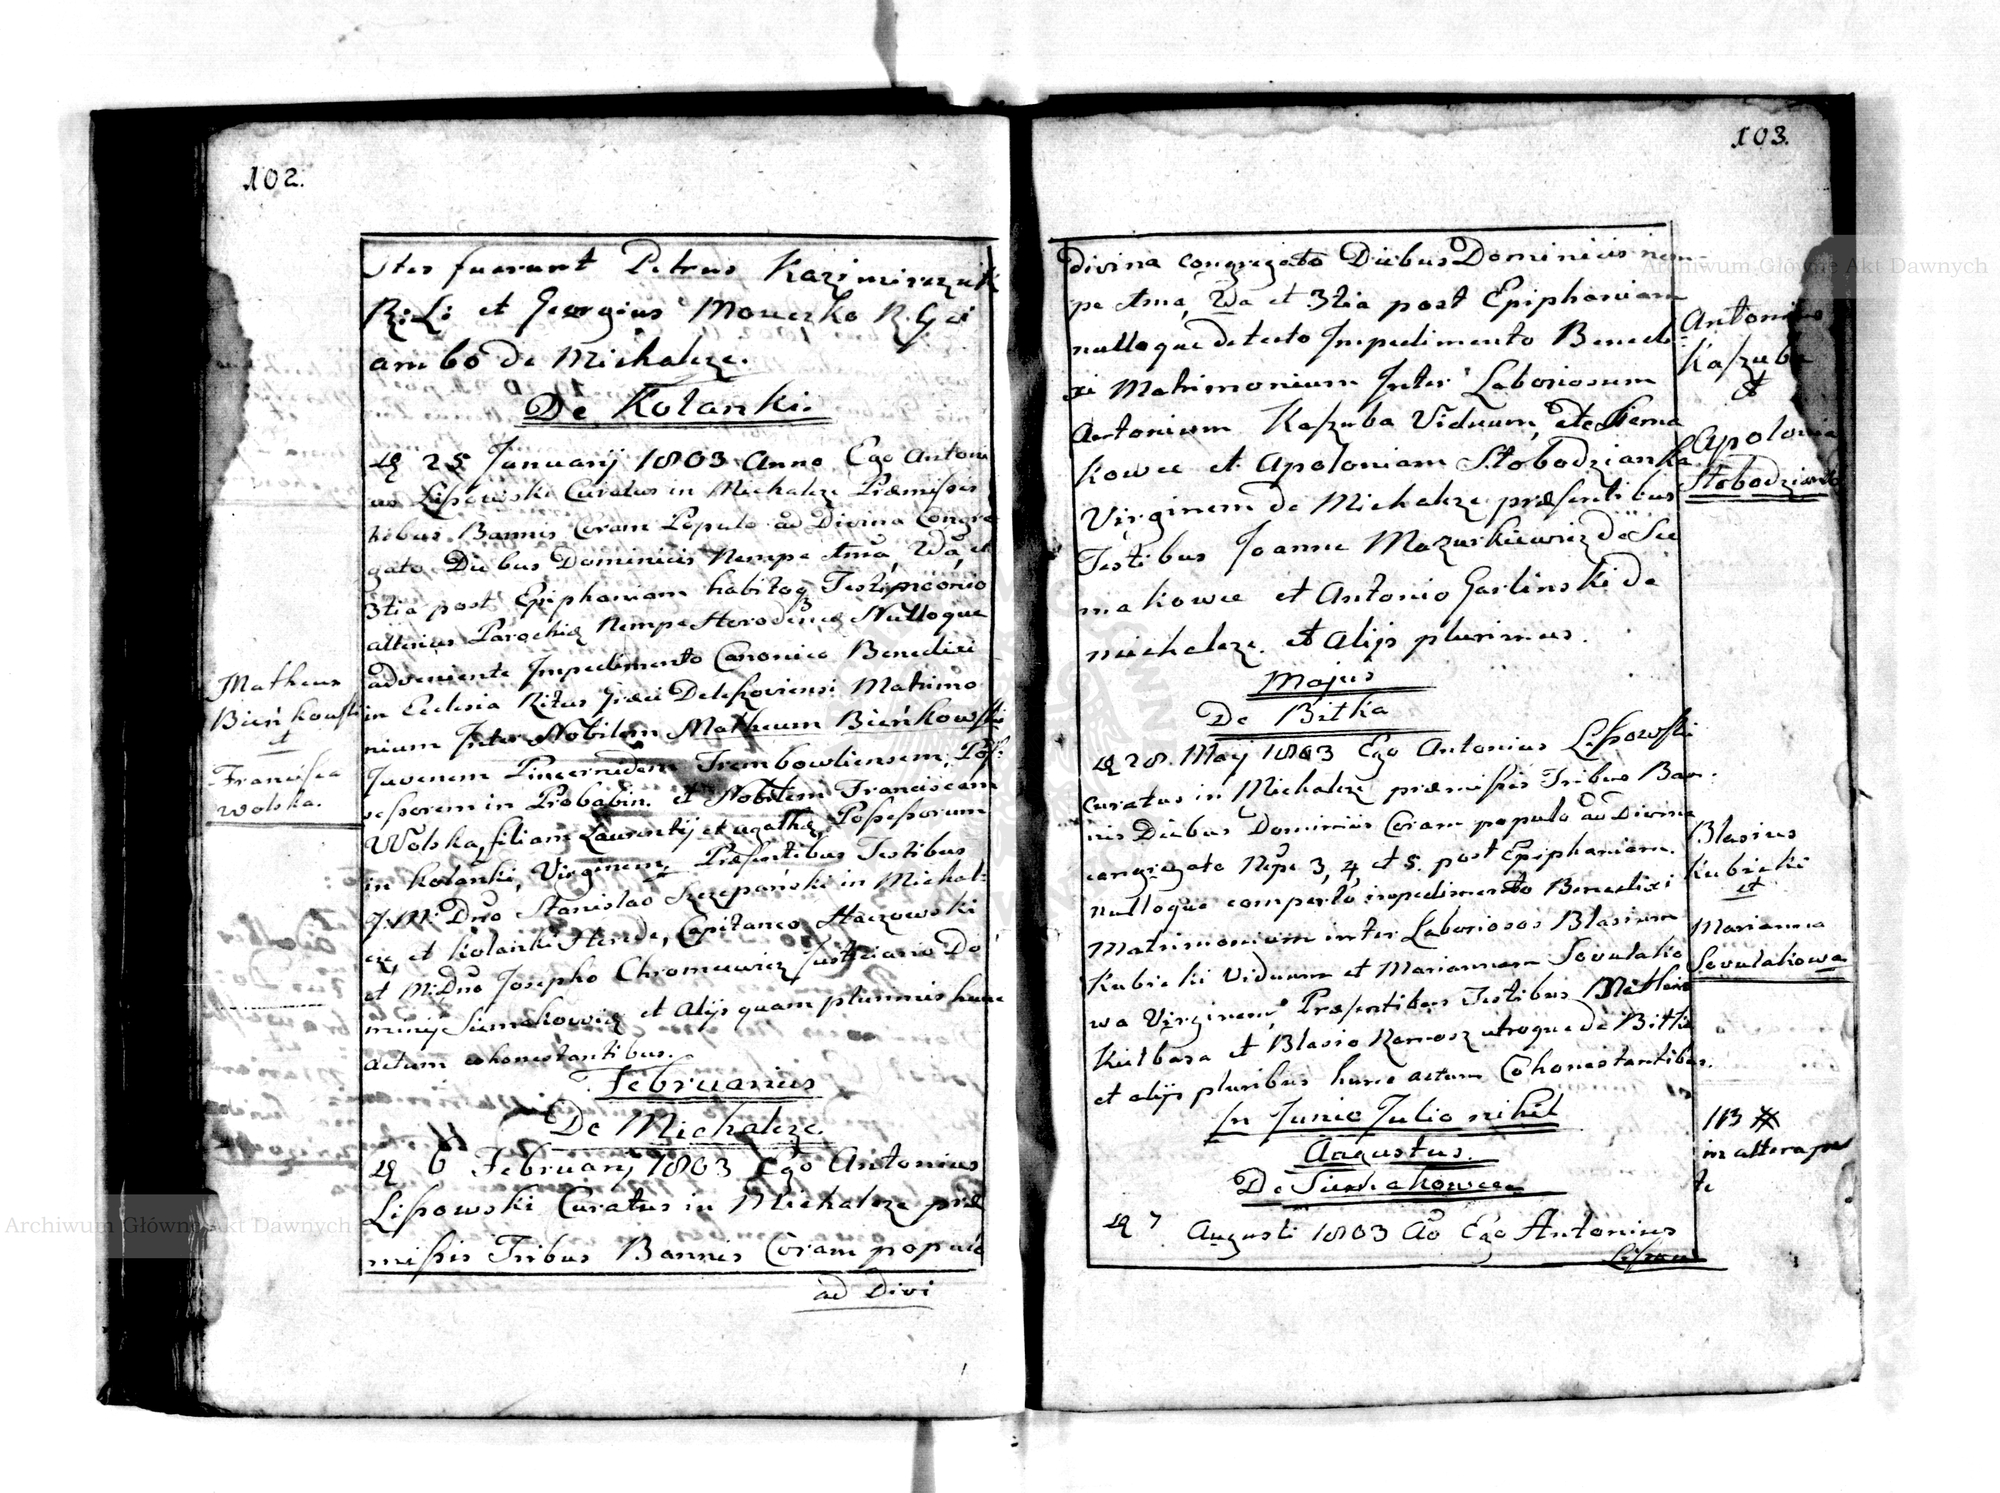 102.
stes fuerunt Petrus Kazimirczuk
R. Li et Georgius Moweszko R. Gci
ambo de Michalcze.
De Kolanki.
25 Januarij 1803 Anno Ego Antoni
us Lissowski Curatus in Michalcze Præmissis
tribus Bannis Coram Populo ad Divina Congre
gato Diebus Dominicis Nempe 1ma, 2da, et
3tia post Epiphaniam habitoq Testimonio
alterius Parochiæ Nempe Horodence Nulloque
adveniente Impedimento Canonico Benedixi
in Ecclesia Ritus Græci Deleszoviensi Matrimo
nium Inter Nobilem Matheum Bieńkowski
Juvenem Pincernidem Trembowliensem, Pos:
sessorem in Probabin. et Nobilem Franciscam
Wolska, filiam Laurentij et Agathæ Possessorum
in Kolanki, Virginem, Præsentibus Testibus
J. M. Dno Stanislao Szczepański in Michal:
cze, et Kolanki Herede, Capitaneo Haczowski
et M. Dno Josepho Chromiewicz Justiciario Do
minij Siemakowiez et Alijs quam plurimis hunc
actum cohonestantibus.
Februarius
De Michalcze.
6 February 1803 Ego Antonius
Lissowski Curatus in Michalcze præ
missis Tribus Bannis Coram populo
ad Divi
Matheus
Bieńkowski
et
Francisca
Wolska.
103.
divina congregato Diebus Dominicis nem
pe 1ma, 2da et 3tia post Epiphaniam
nulloque detecto Impedimento Bened
xi Matrimonium Inter Laboriosum
Antonium Kaszuba Viduum, de Siema
kowce et Apoloniam Słobodzianka
Virginem de Michalcze præsentibus
Testibus Joanne Mazurkiewicz de Sie
makowce et Antonio Garlinski de
michalcze. et Alijs plurimus.
Majus
De Bitka
28. May 1803 Ego Antonius Lissowski
Curatus in Michalcze præmissis Tribus Ban
nis Diebus Dominicis Coram populo ad Divina
congregato Nepe 3, 4, et 5. post Epiphaniam.
nulloque comperto impedimento Benedixi
Matrimonium inter Laboriosos Blasium
Kubicki Viduum et Mariannam Sovulako
wa Virginem, Præsentibus Testibus
Kiełbasa et Blasio Romosz utroque de Bitka
et alijs pluribus hunc actum Cohonestantibus.
In Junio Julio nihil
Augustus.
De Siemakowce
7 Augusti 1803 Ao Ego Antonius
Lissow
Antonius
Kaszuba
et
Apolonia
Słobodzianka
Blasius
Kubicki
et
Marianna
Sovulakowa
113 #
in altera par
te
Archiwum Główne Akt Dawnych
Archiwum Główne Akt Dawnych